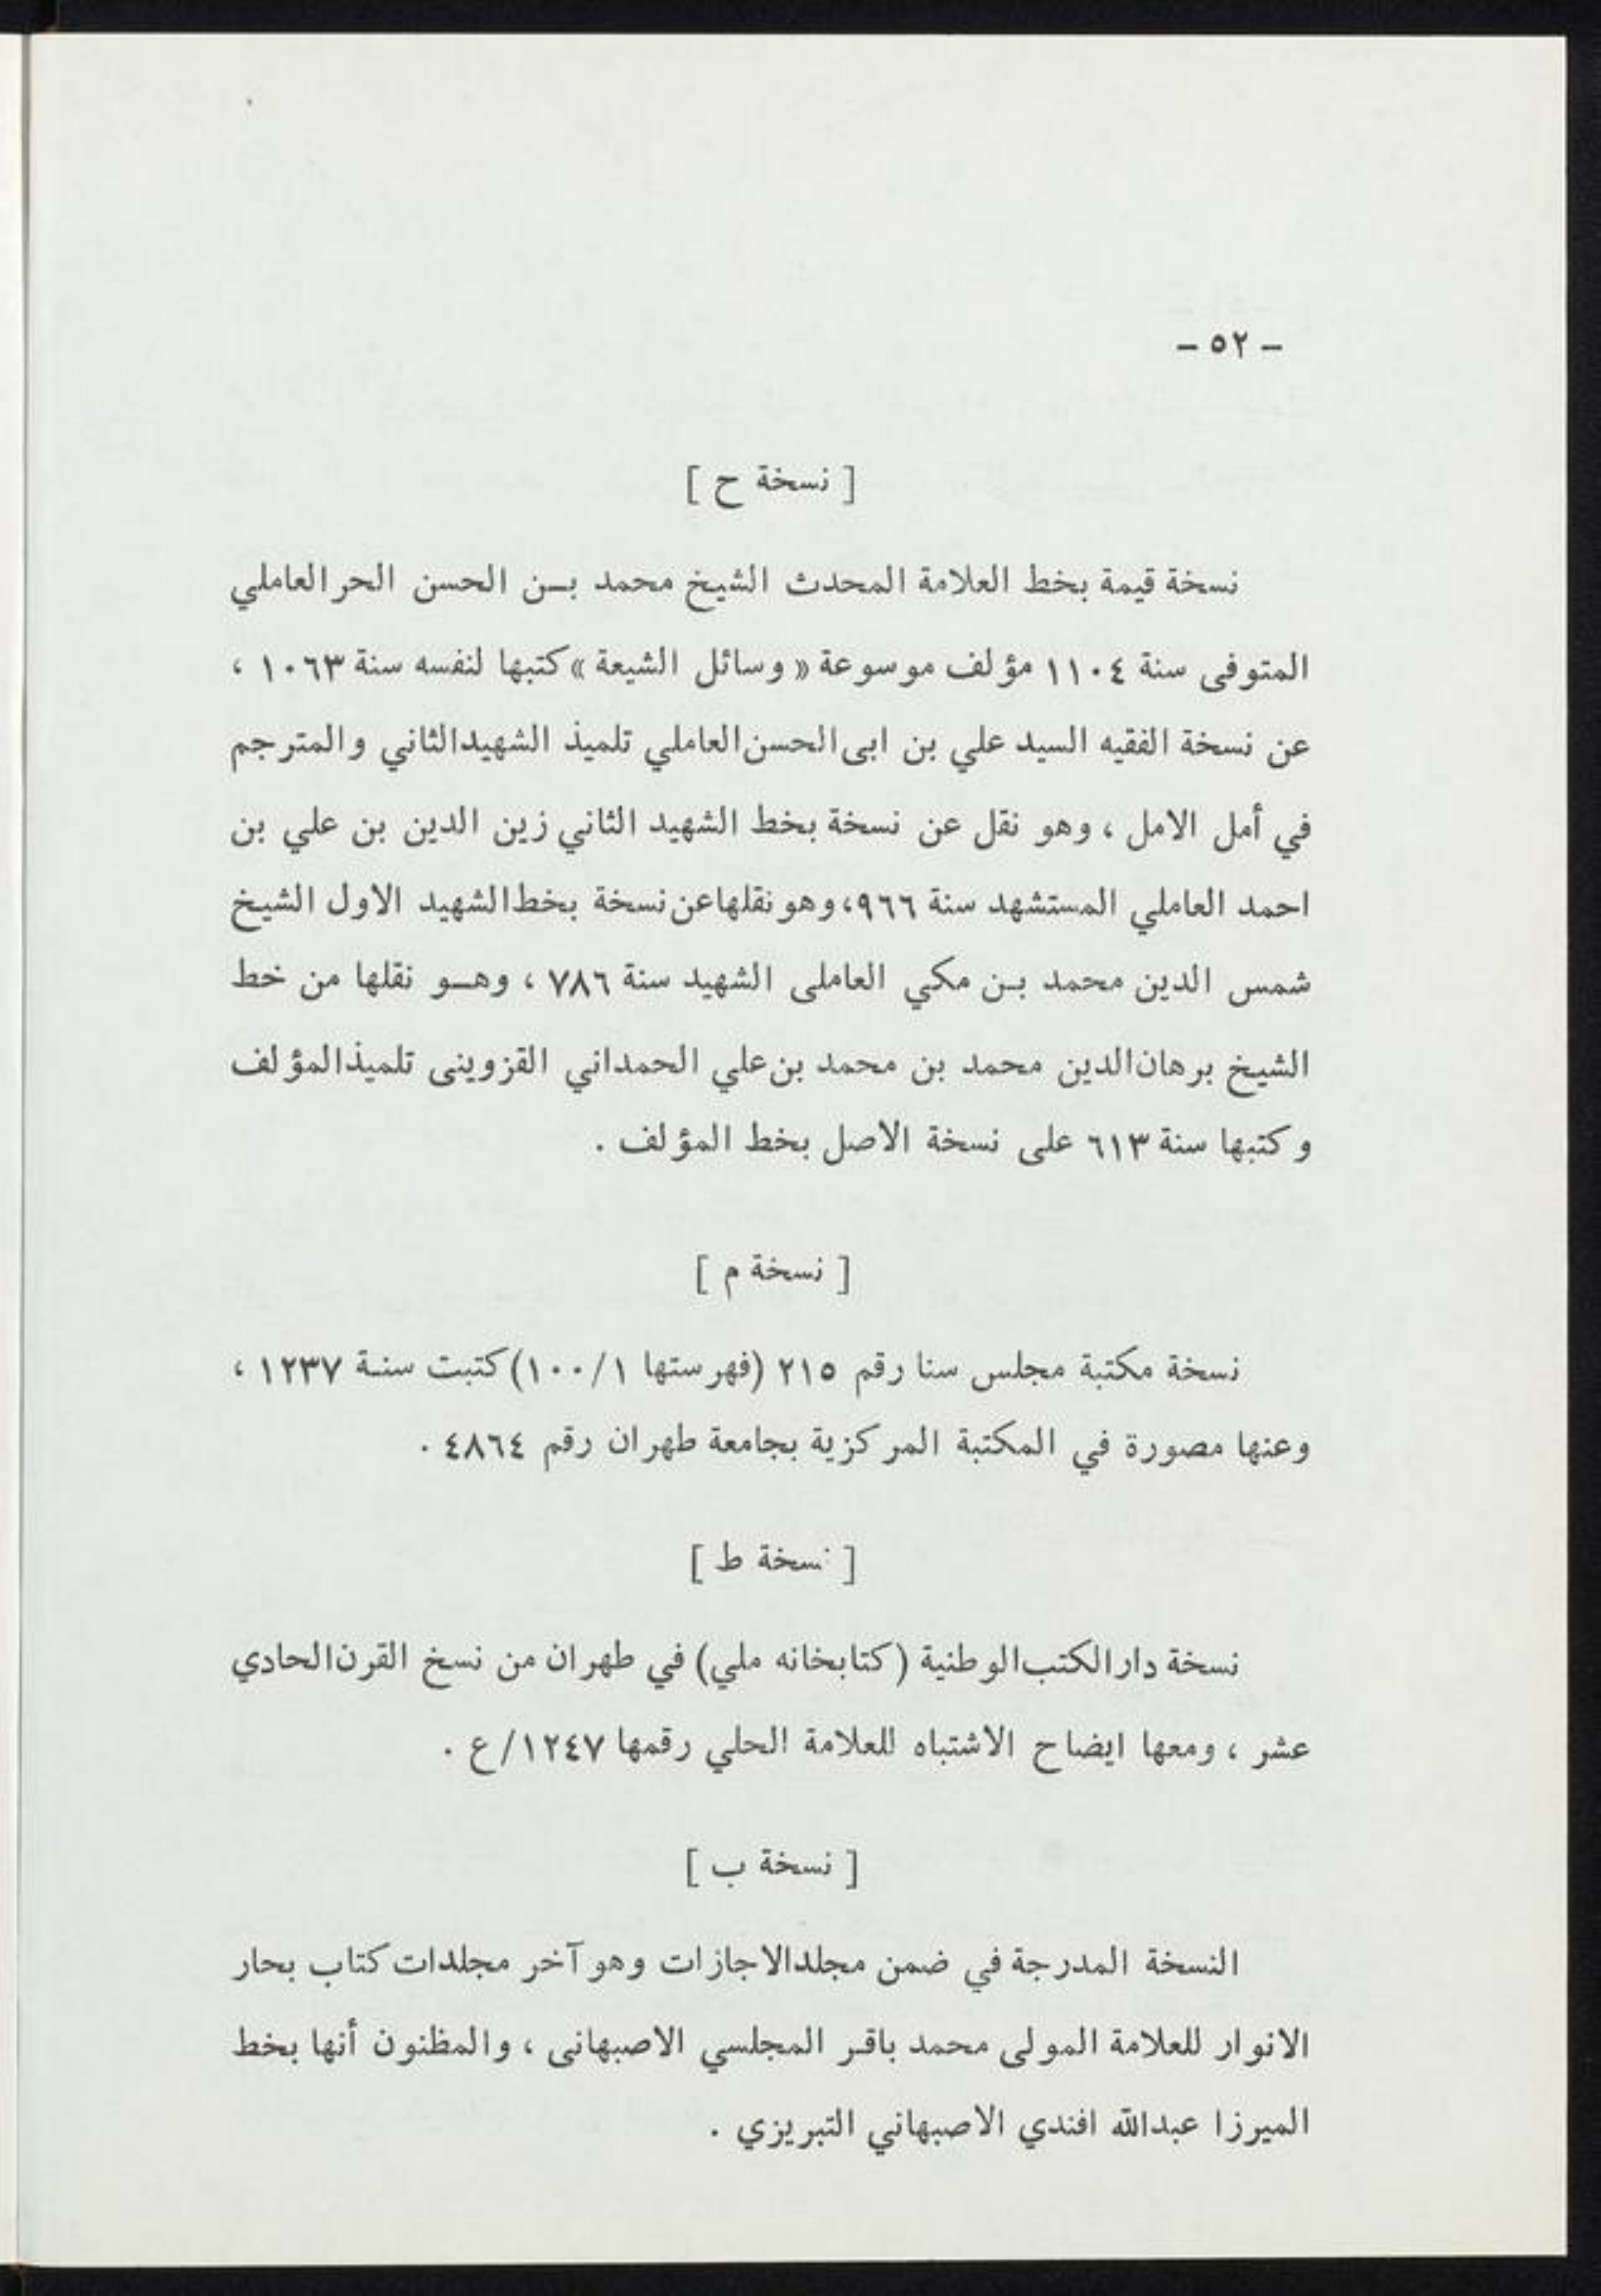 – ٥٢ –
[ نسخة ح ]
نسخة قيمة بخط العلامة المحدث الشيخ محمد بن الحسن الحر العاملي
المتوفى سنة ١١٠٤ مؤلف موسوعة « وسائل الشيعة » كتبها لنفسه سنة ١٠٦٣ ،
عن نسخة الفقيه السيد علي بن ابى الحسن العاملي تلميذ الشهيد الثاني والمترجم
في أمل الامل ، وهو نقل عن نسخة بخط الشهيد الثاني زين الدين بن علي بن
احمد العاملي المستشهد سنة ٩٦٦، وهو نقلها عن نسخة بخط الشهيد الاول الشيخ
شمس الدين محمد بن مكي العاملى الشهيد سنة ٧٨٦ ، وهو نقلها من خط
الشيخ برهان الدين محمد بن محمد بن علي الحمداني القزوينى تلميذ المؤلف
وكتبها سنة ٦١٣ على نسخة الاصل بخط المؤلف .
[ نسخة م ]
نسخة مكتبة مجلس سنا رقم ٢١٥ (فهرستها ١٠٠/١) كتبت سنة ١٢٣٧ ،
وعنها مصورة في المكتبة المركزية بجامعة طهران رقم ٤٨٦٤ .
[ نسخة ط ]
نسخة دار الكتب الوطنية (كتابخانه ملي) في طهران من نسخ القرن الحادي
عشر ، ومعها ايضاح الاشتباه للعلامة الحلي رقمها ١٢٤٧/ع .
[ نسخة ب ]
النسخة المدرجة في ضمن مجلد الاجازات وهو آخر مجلدات كتاب بحار
الانوار للعلامة المولى محمد باقر المجلسي الاصبهانى ، والمظنون أنها بخط
الميرزا عبدالله افندي الاصبهاني التبريزي .